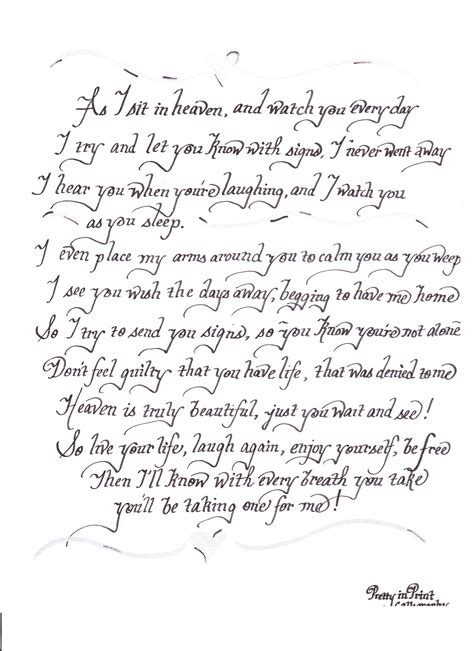 As I sit in heaven, and watch you every day
I try and let you know with signs, I never went away
I hear you when you're laughing, and I watch you
as you sleep.
I even place my arms around you to calm you as you weep
I see you wish the days away, begging to have me home
So I try to send you signs, so you know you're not alone
Don't feel guilty that you have life, that was denied to me
Heaven is truly beautiful, just you wait and see!
So live your life, laugh again, enjoy yourself, be free
Then I'll know with every breath you take
you'll be taking one for me!
Pretty in Print
Calligraphy